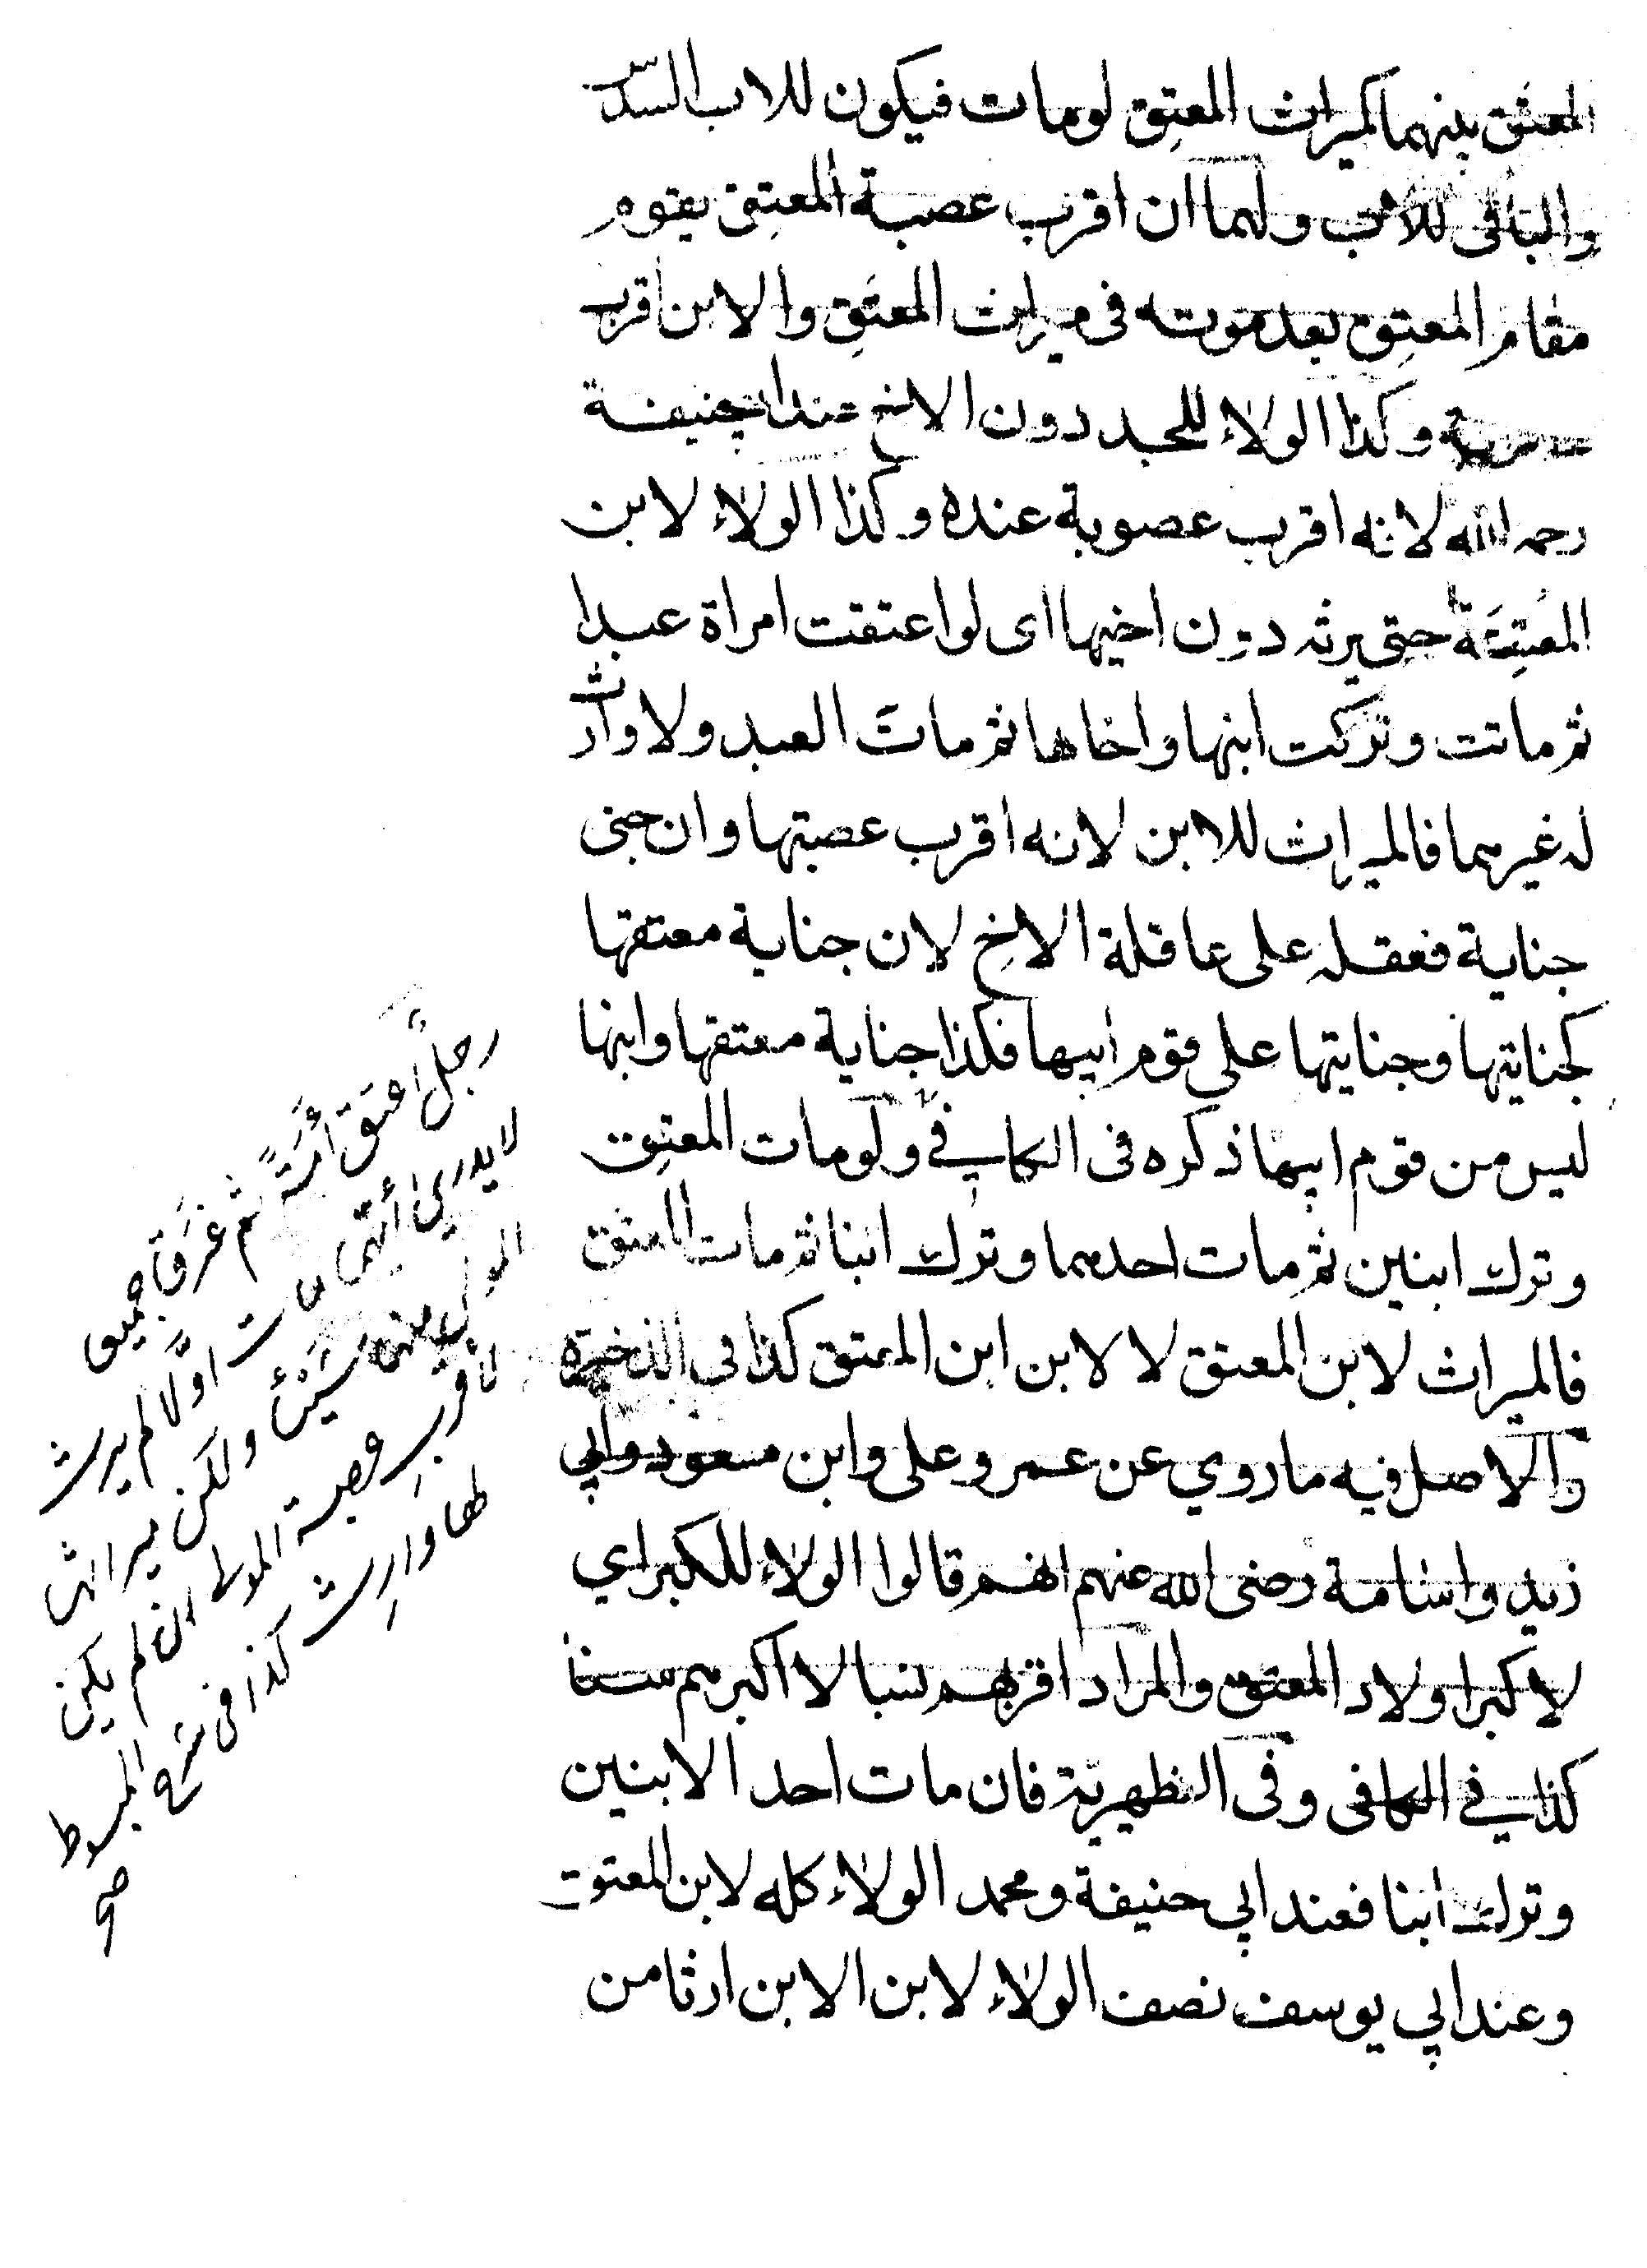 المعتَق بينهما كميراث المعتِق لو مات فيكون للاب السدس
والباقي للابن ولهما ان اقرب عصبة المعتِق يقوم
مقام المعتِق بعد موته في ميراث المعتَق والابن اقرب
عصوبة وكذا الولاء للجد دون الاخ عند ابي حنيفة
رحمه الله لانه اقرب عصوبة عنده وكذا الولاء لابن
المُعتِقَة حتى يرثه دون اخيها اى لو اعتقت امراة عبدا
ثم ماتت وتركت ابنها واخاها ثم ماتَ العبد ولا وارث
له غيرهما فالميراث للابن لانه اقرب عصبتها وان جنى
جناية فعقله على عاقلة الاخ لان جناية معتقها
كجنايتها وجنايتها على قوم ابيها فكذا جناية معتقها وابنها
ليس من قوم ابيها ذكره في الكافي ولو مات المعتِق
وترك ابنين ثم مات احدهما وترك ابنا ثم مات المعتق
فالميراث لابن المعتق لا لابن ابن المعتق كذا في الذخيرة
والاصل فيه ما روي عن عمر وعلى وابن مسعود وابي
زيد واسامة رضى الله عنهم انهم قالوا الولاء للكبر اي
لاكبر اولاد المعتق والمراد اقربهم نسبا لا اكبرهم سنا
كذا في الكافى وفى الظهيرية فان مات احد الابنين
وترك ابنا فعند ابي حنيفة ومحمد الولاء كله لابن المعتق
وعند ابي يوسف نصف الولاء لابن الابن ارثا من
رجلٌ اعتق أَمَةً ثم غرقا جميعا
لا يدرى أيّهما مات اوّلا لم يرث
المولى منها شيئ ولكن ميراثها
لاقرب عصبة المولى ان لم يكن
لها وارِث كذا فى شرح المبسوط